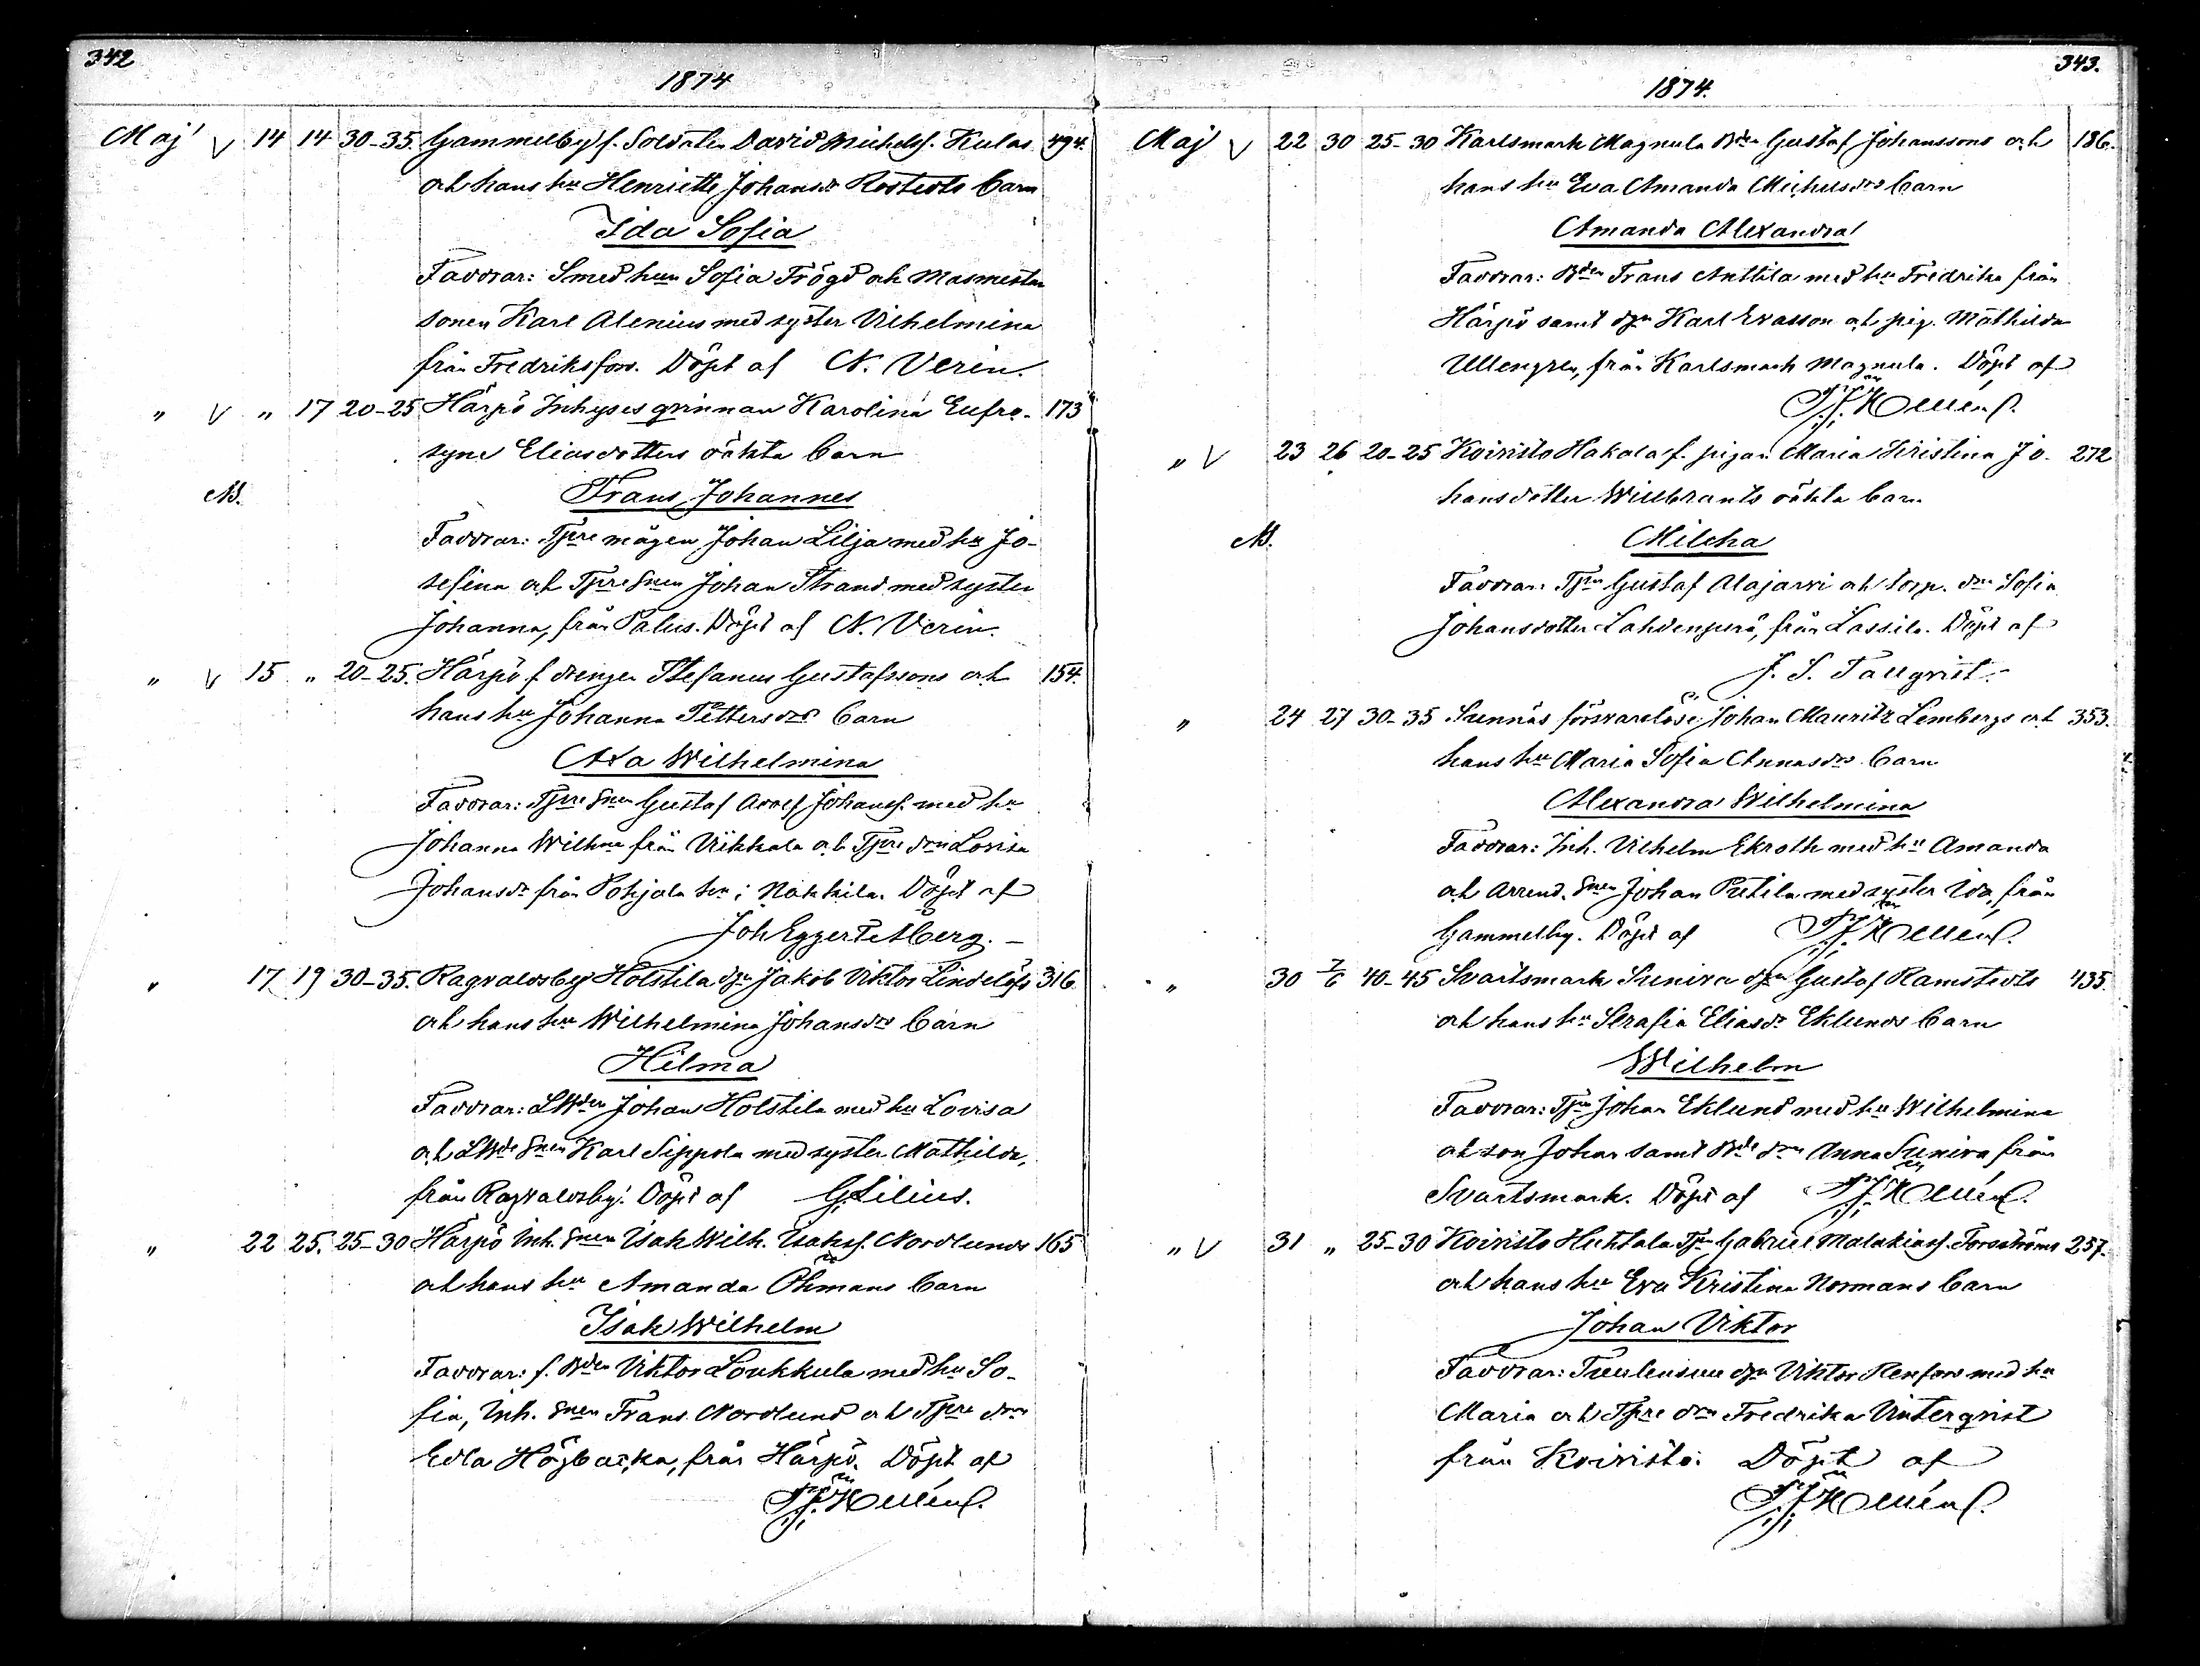 342
1874
Maj V 14 14 30-35. Gammelby f. Soldaten David Michelss. Kulas 494.
och hans hu Henriette Johansdr Rostedts barn
Ida Sofia
Faddrar: Smed hun Sofia Frögd och Masmestar
sonen Karl Alenius med syster Vilhelmina
från Fredriksfors. Döpt af N. Verin.
" V " 17 20-25 Härpö Inhyses qvinnan Karolina Eufro- 173
syne Eliasdotters oäkta barn
NB. Frans Johannes
Faddrar: Tpre mågen Johan Lilja med hu Jo-
sefina och Tpre Snen Johan Strand med syster
Johanna, från Palus. Döpt af N. Verin.
" V 15 " 20-25. Härpö f drengen Stefanus Gustafssons och 154.
hans hu Johanna Pettersdrs barn
Axa Wilhelmina
Faddrar: Tpre Snen Gustaf Adolf Johanss. med hu
Johanna Wilhna från Viikkala och Tpre drn Lovisa
Johansdr från Pohjala hn i Nakkila. Döpt af
Joh Eggert Alberg.
" 17 19 30-35. Ragvaldsby Holstila dgn Jakob Viktor Lindelöfs 316.
och hans hu Wilhelmina Johansdrs barn
Hilma
Faddrar: LBden Johan Holstila med hu Lovisa
och LBde Snen Karl Sippola med syster Mathilda,
från Ragvaldsby. Döpt af G. Lilius.
" 22 25. 25-30 Härpö Inh. Snen Isak Wilh. Isakss. Nordlunds 165
och hans hu Amanda Öhmans barn
Isak Wilhelm
Faddrar: f. Bden Viktor Loukkula med hu So-
fia, Inh. Snen Frans Nordlund och Tpre drn
Edla Högbacka, från Härpö. Döpt af
343.
1874.
Maj V 22 30 25-30 Karlsmark Magnula Bden Gustaf Johanssons och 186.
hans hu Eva Amanda Michelsdrs barn
Amanda Alexandra
Faddrar: Bden Frans Anttila med hu Fredrika från
Härpö samt dgn Karl Evasson och pig. Mathilda
Ullengren, från Karlsmark Magnula. Döpt af
" V 23 26 20-25 Koivisto Hakala f. pigan Maria Kristina Jo- 272
hansdotter Willbrants oäkta barn
NB. Milcha
Faddrar: Tprn Gustaf Alajarvi och torp. drn Sofia
Johansdotter Lahdenperä, från Lassila. Döpt af
J. S. Tallqvist.
" 24 27 30-35 Sunnäs försvarslöse Johan Mauritz Lembergs och 353.
hans hu Maria Sofia Annasdrs barn
Alexandra Wilhelmina
Faddrar: Inh. Vilhelm Ekroth med hu Amanda
och Arrend. Snen Johan Putila med syster Ida, från
Gammelby. Döpt af
" 30 7/6 40-45 Svartsmark Suniva dgn Gustaf Ramstedts 435.
och hans hu Serafia Eliasdr Eklunds barn
Wilhelm
Faddrar: Tprn Johan Eklund med hu Wilhelmina
och son Johan samt Bde drn Anna Suniva från
Svartsmark. Döpt af
" V 31 " 25-30 Koivisto Huhtala Tprn Gabriel Malakiass. Forsströms 257.
och hans hu Eva Kristina Normans barn
Johan Viktor
Faddrar: dgn Viktor Renfors med hu
Maria och Tpre drn Fredrika Vinterqvist
från Koivisto. Döpt af